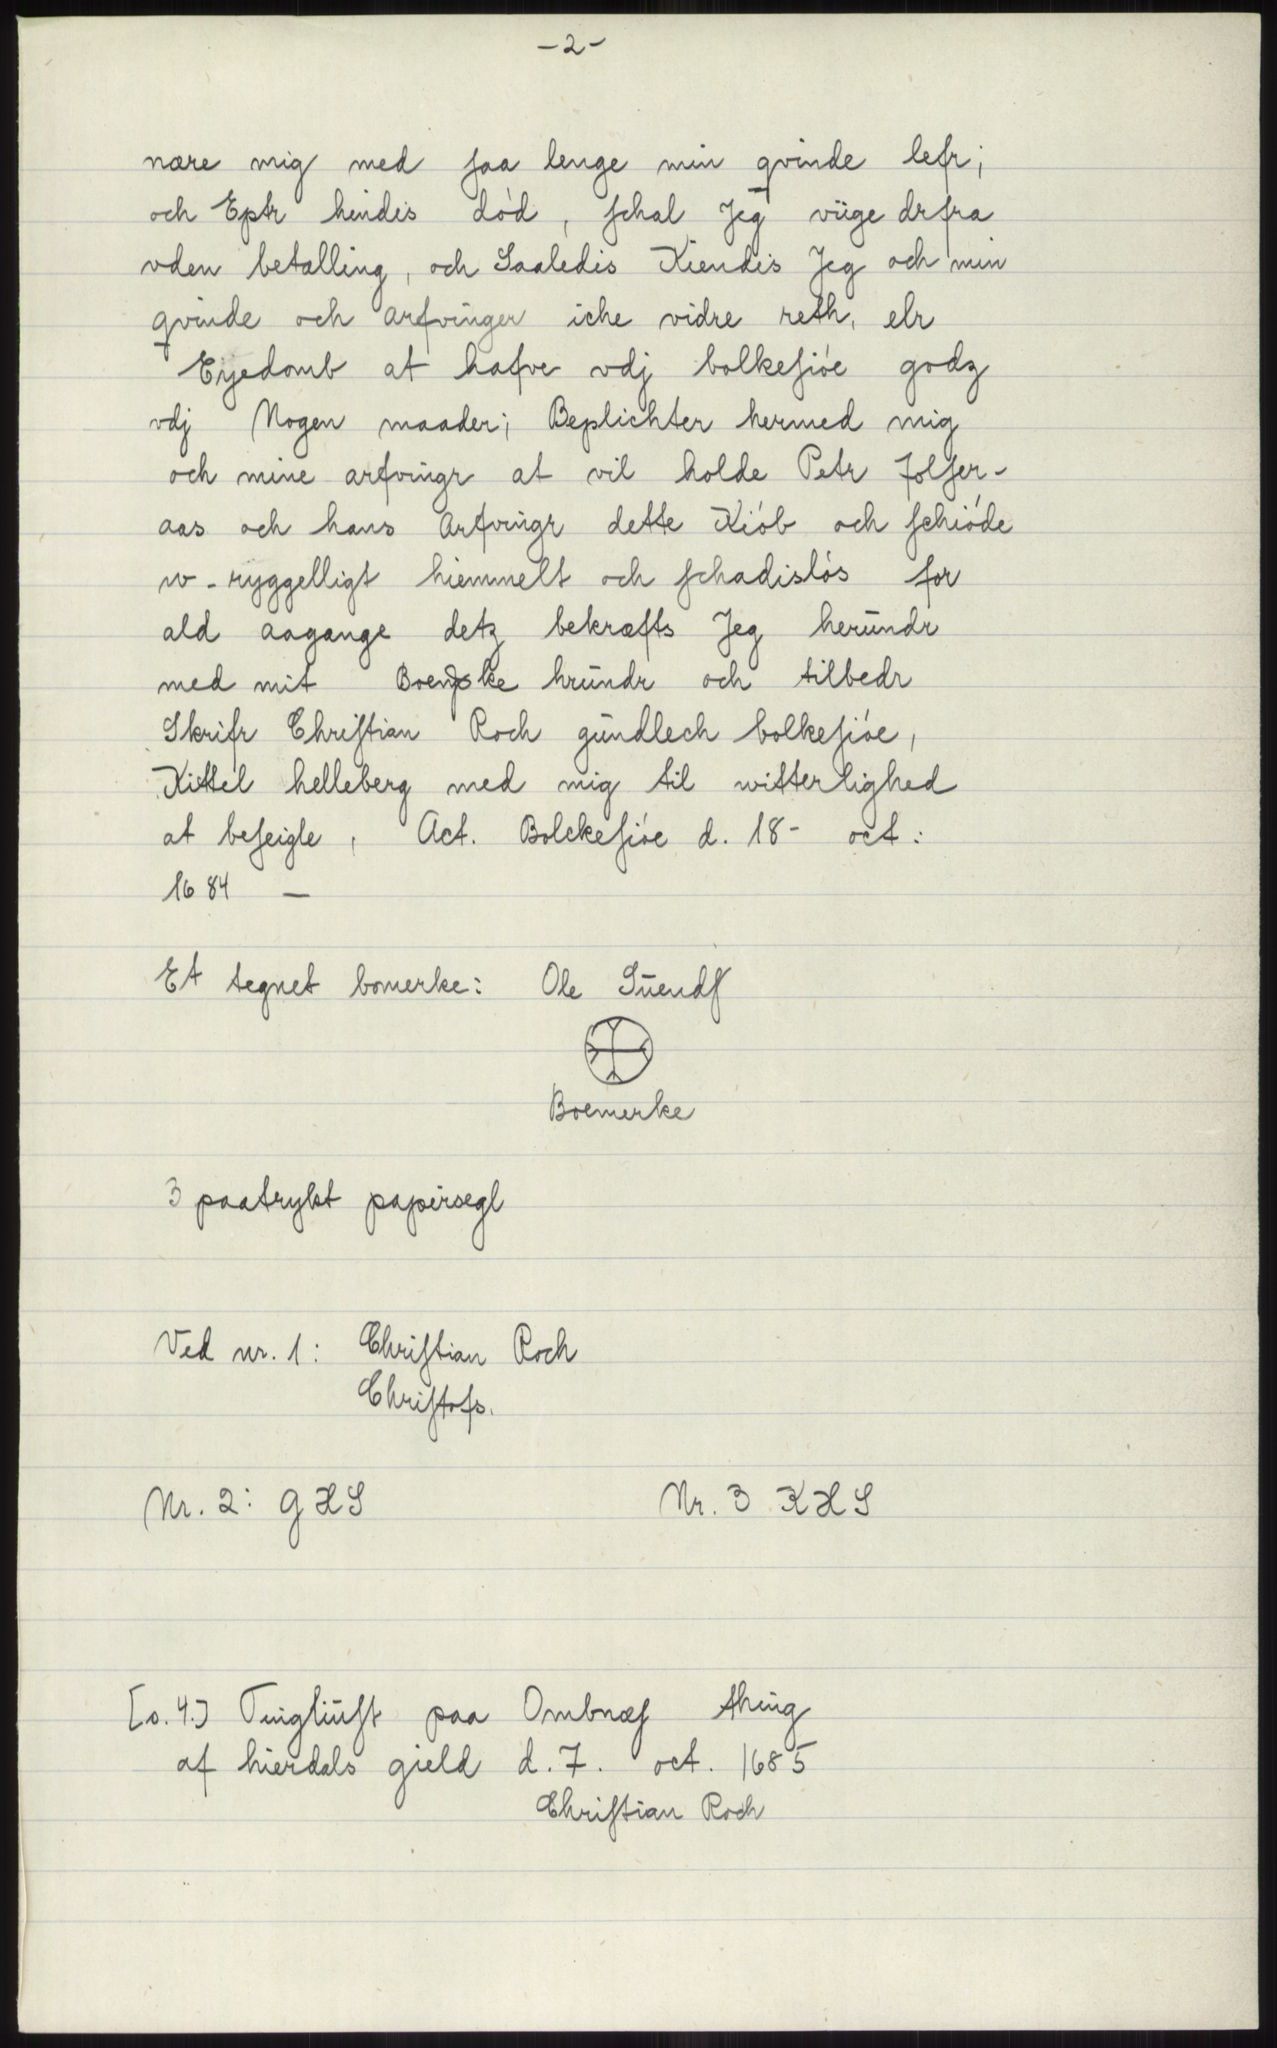 -2-
nære mig med saa lenge min qvinde lefr;
och Eptr hindis dód, schal Jeg viige drfra
vden betalling, och Saaledis Kiendis Jeg och min
qvinde och arfvinger iche vidre reth, elr
Eijedomb at hafve vdj bolkesióe godz
vdj Nogen maader; Beplichter hermed mig
och mine arfvingr at vil holde Petr folser-
aas och hans Arfvingr dette Kiób och schióde
w-ryggelligt hiemmelt och schadislós for
ald aagange detz bekræfts Jeg herŭndr
med mit hrŭndr och tilbedr
Skrifr Christian Roch gŭndlech bolkesióe,
Kittel helleberg med mig til witterlighed
at beseigle, Act. Bolckesióe d. 18- oct:
1684 —
Et tegnet bomerke: Ole Sŭends
Boemerke
3 paatrykt papirsegl
Ved nr. 1: Christian Roch
Christofs.
Nr. 2: G H S Nr. 3 K H S
[s. 4.] Tinglŭst paa Ombnæs thing
af hierdals gield d. 7. oct. 1685
Christian Roch